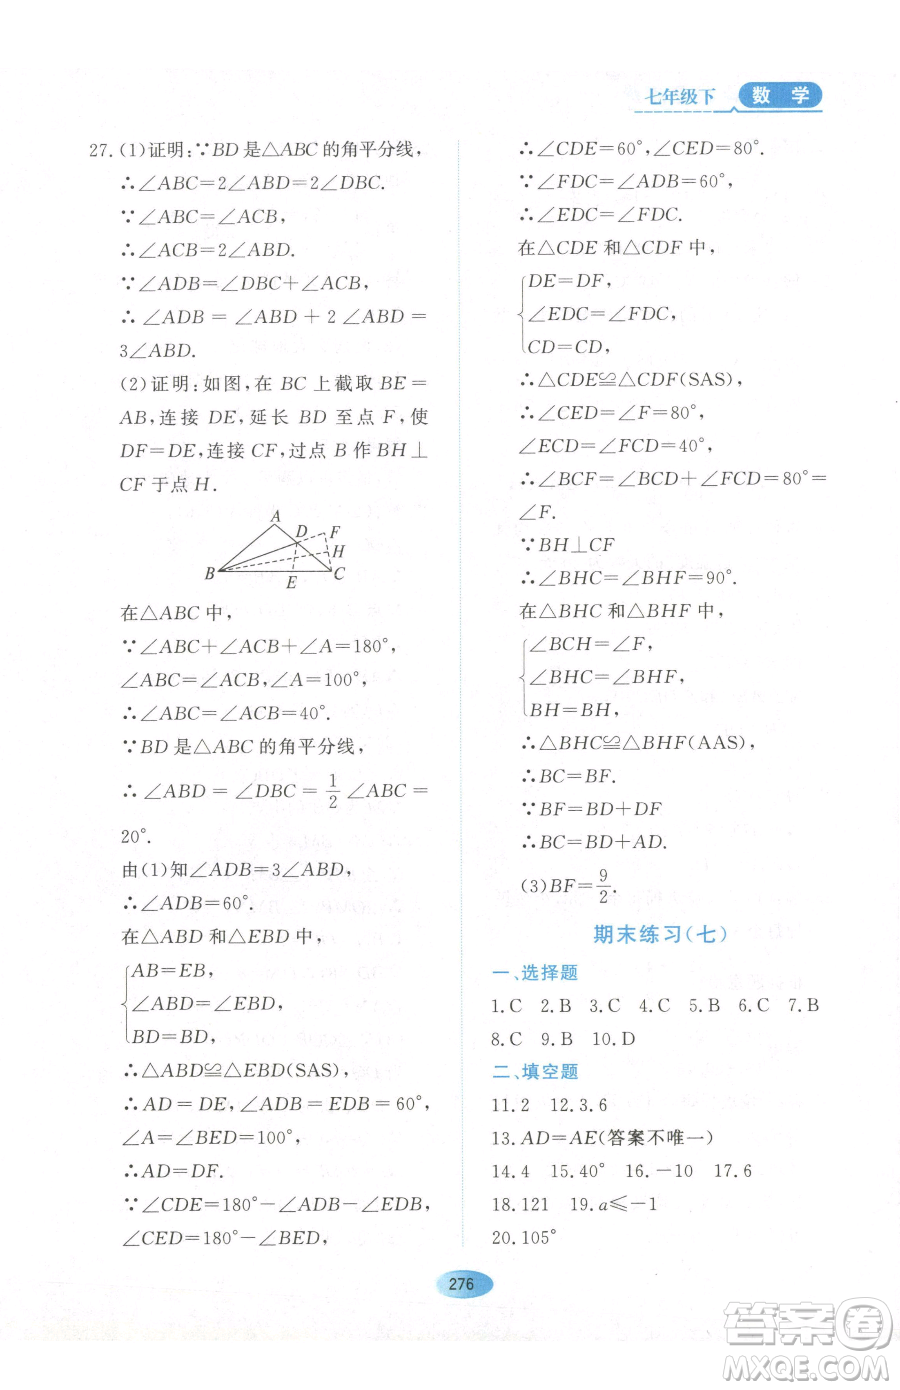 七年级下 数 学
27.(1)证明:∵BD是△ABC的角平分线,
∴∠ABC=2∠ABD=2∠DBC.
∵∠ABC=∠ACB,
∴∠ACB=2∠ABD.
∵∠ADB=∠DBC+∠ACB,
∴∠ADB=∠ABD+2∠ABD=
3∠ABD.
(2)证明:如图,在BC上截取BE=
AB,连接DE,延长BD至点F,使
DF=DE,连接CF,过点B作BH⊥
CF于点H.
A
D F
H
B E C
在△ABC中,
∵∠ABC+∠ACB+∠A=180°,
∠ABC=∠ACB,∠A=100°,
∴∠ABC=∠ACB=40°.
∵BD是△ABC的角平分线,
∴∠ABD=∠DBC=1/2∠ABC=
20°.
由(1)知∠ADB=3∠ABD,
∴∠ADB=60°.
在△ABD和△EBD中,
AB=EB,
∠ABD=∠EBD,
BD=BD,
∴△ABD≌△EBD(SAS),
∴AD=DE,∠ADB=EDB=60°,
∠A=∠BED=100°,
∴AD=DF.
∵∠CDE=180°-∠ADB-∠EDB,
∠CED=180°-∠BED,
∴∠CDE=60°,∠CED=80°.
∵∠FDC=∠ADB=60°,
∴∠EDC=∠FDC.
在△CDE和△CDF中,
DE=DF,
∠EDC=∠FDC,
CD=CD,
∴△CDE≌△CDF(SAS),
∴∠CED=∠F=80°,
∠ECD=∠FCD=40°,
∴∠BCF=∠BCD+∠FCD=80°=
∠F.
∵BH⊥CF
∴∠BHC=∠BHF=90°.
在△BHC和△BHF中,
∠BCH=∠F,
∠BHC=∠BHF,
BH=BH,
∴△BHC≌△BHF(AAS),
∴BC=BF.
∵BF=BD+DF
∴BC=BD+AD.
(3)BF=9/2.
期末练习(七)
一、选择题
1.C 2.B 3.C 4.C 5.B 6.C 7.B
8.C 9.B 10.D
二、填空题
11.2 12.3.6
13.AD=AE(答案不唯一)
14.4 15.40° 16.-10 17.6
18.121 19.a≤-1
20.105°
276
答案圈
MXQE.COM